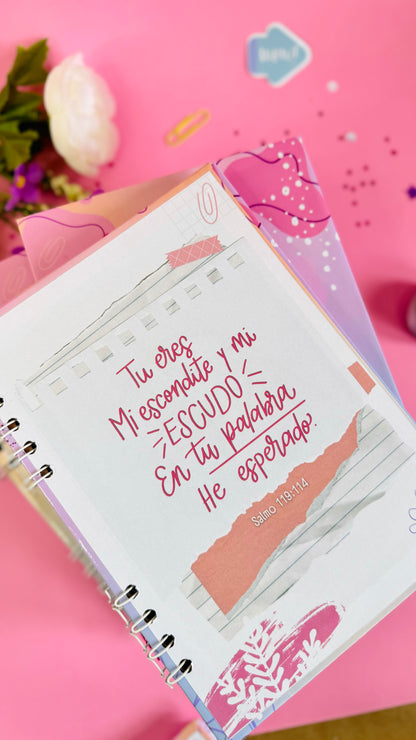 Tu eres
Mi escondite y mi
ESCUDO
En tu palabra
He esperado.
Salmo 119:114